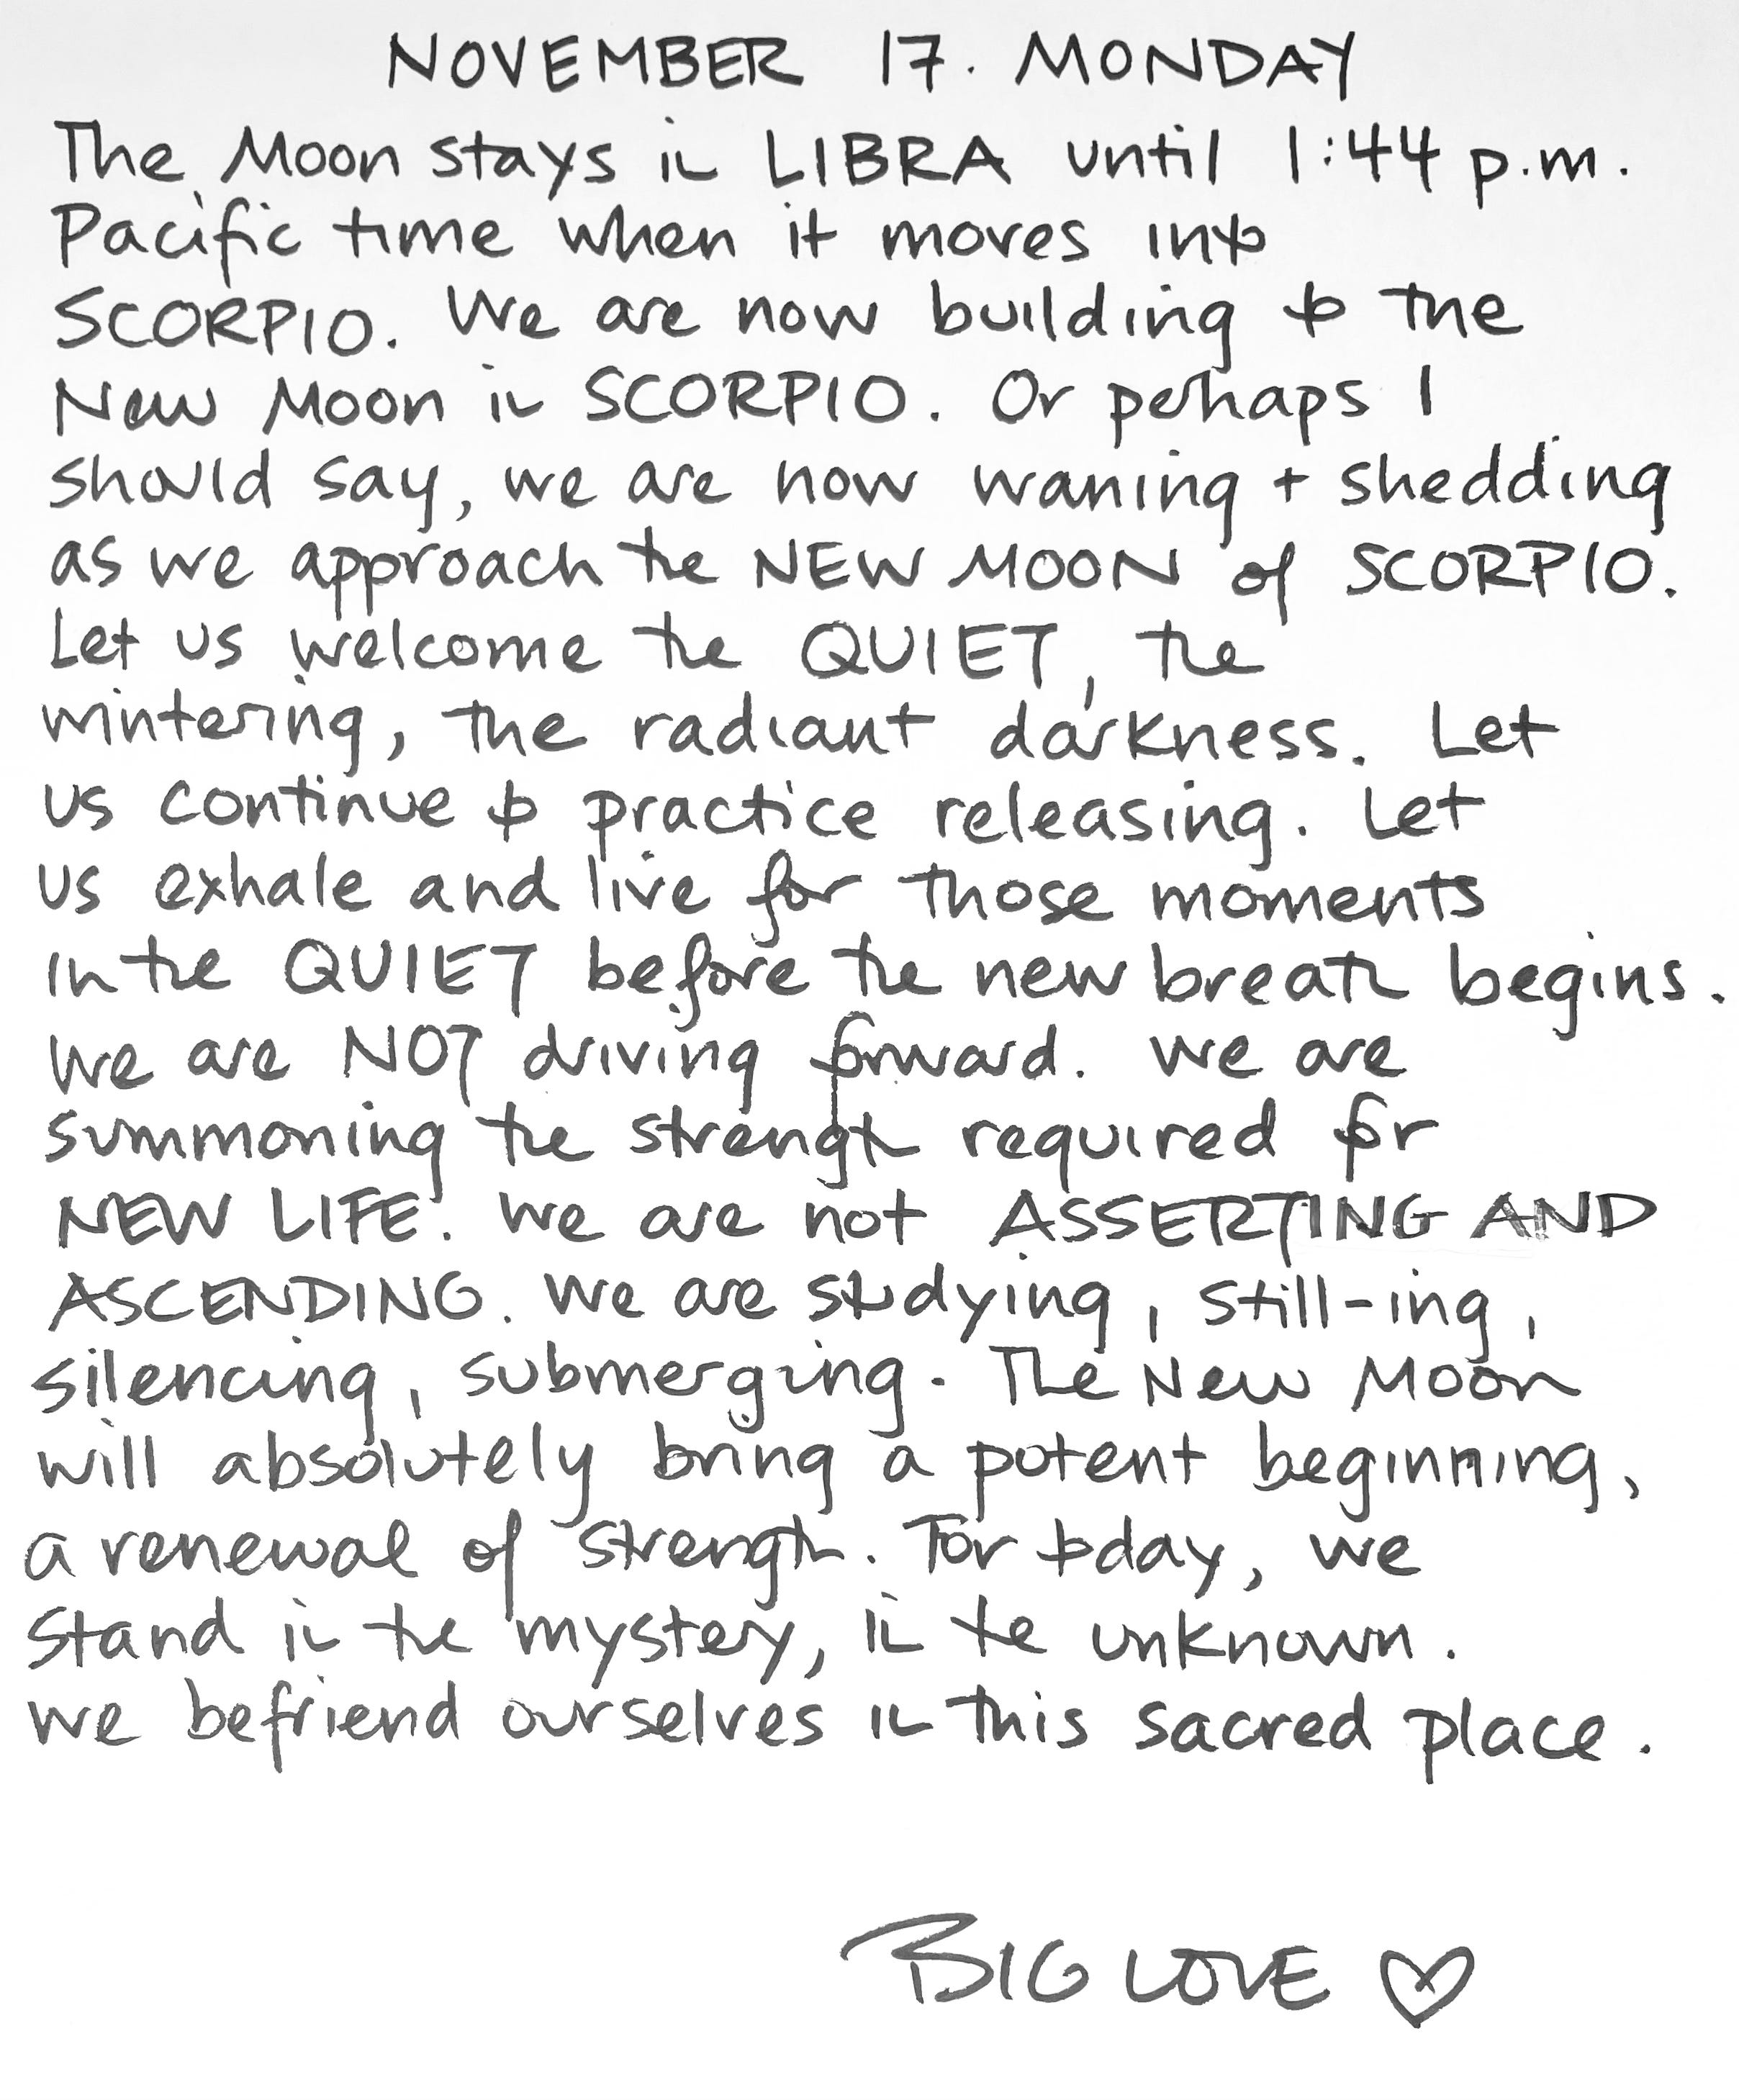 NOVEMBER 17. MONDAY
The Moon stays in LIBRA until 1:44 p.m.
Pacific time when it moves into
SCORPIO. We are now building to the
New Moon in SCORPIO. Or perhaps I
should say, we are now waning + shedding
as we approach the NEW MOON of SCORPIO.
Let us welcome the QUIET, the
wintering, the radiant darkness. Let
us continue to practice releasing. Let
us exhale and live for those moments
in the QUIET before the new breath begins.
We are NOT driving forward. We are
summoning the strength required for
NEW LIFE. We are not ASSERTING AND
ASCENDING. We are studying, still-ing,
silencing, submerging. The New Moon
will absolutely bring a potent beginning,
a renewal of strength. For today, we
stand in the mystery, in the unknown.
We befriend ourselves in this sacred place.
BIG LOVE ♡